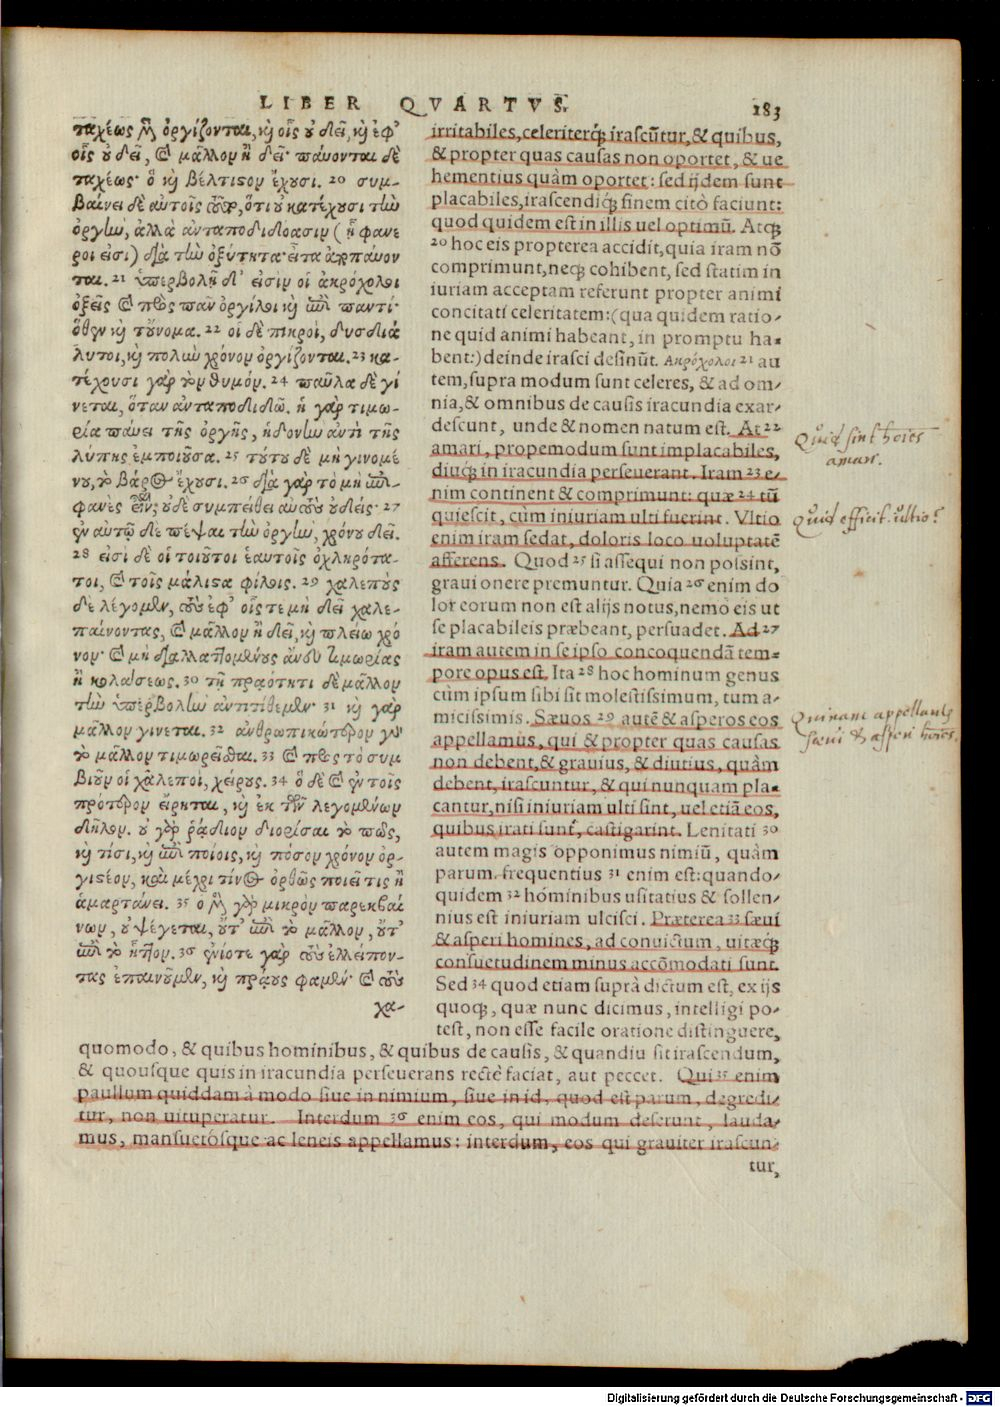 LIBER QVARTVS. 183
ταχέως μὲν ὀργίζονται, καὶ οἷς οὐ δεῖ, καὶ ἐφ'
οἷς οὐ δεῖ, καὶ μᾶλλον ἢ δεῖ· παύονται δὲ
ταχέως· ὃ καὶ βέλτιστον ἔχουσι. 20 συμ-
βαίνει δὲ αὐτοῖς τοῦτο, ὅτι οὐ κατέχουσι τὴν
ὀργὴν, ἀλλὰ ἀνταποδιδόασιν (ᾗ φανε
ροί εἰσι) διὰ τὴν ὀξύτητα· εἶτα ἀποπαύον
ται. 21 ὑπερβολῇ δ' εἰσὶν οἱ ἀκρόχολοι
ὀξεῖς καὶ πρὸς πᾶν ὀργίλοι καὶ ἐπὶ παντί·
ὅθεν καὶ τοὔνομα. 22 οἱ δὲ πικροὶ, δυσδιά
λυτοι, καὶ πολὺν χρόνον ὀργίζονται. 23 κα-
τέχουσι γὰρ τὸν θυμόν. 24 παῦλα δὲ γί
νεται, ὅταν ἀνταποδιδῶ. ἡ γὰρ τιμω-
ρία παύει τῆς ὀργῆς, ἡδονὴν ἀντὶ τῆς
λύπης ἐμποιοῦσα. 25 τούτου δὲ μὴ γινομέ
νου, τὸ βάρος ἔχουσι. 26 διὰ γὰρ τὸ μὴ ἐπι-
φανὲς εἶναι οὐδὲ συμπείθει αὐτοὺς οὐδείς· 27
ἐν αὑτῷ δὲ πέψαι τὴν ὀργὴν, χρόνου δεῖ.
28 εἰσὶ δὲ οἱ τοιοῦτοι ἑαυτοῖς ὀχληρότα-
τοι, καὶ τοῖς μάλιστα φίλοις. 29 χαλεποὺς
δὲ λέγομεν, τοὺς ἐφ' οἷς τε μὴ δεῖ χαλε-
παίνοντας, καὶ μᾶλλον ἢ δεῖ, καὶ πλείω χρό
νον· καὶ μὴ διαλλαττομένους ἄνευ τιμωρίας
ἢ κολάσεως. 30 τῇ πραότητι δὲ μᾶλλον
τὴν ὑπερβολὴν ἀντιτίθεμεν· 31 καὶ γὰρ
μᾶλλον γίνεται. 32 ἀνθρωπικώτερον γὰρ
τὸ μᾶλλον τιμωρεῖσθαι. 33 καὶ πρὸς τὸ συμ
βιοῦν οἱ χαλεποὶ, χείρους. 34 ὃ δὲ καὶ ἐν τοῖς
πρότερον εἴρηται, καὶ ἐκ τῶν λεγομένων
δῆλον. οὐ γὰρ ῥᾴδιον διορίσαι τὸ πῶς,
καὶ τίσι, καὶ ἐπὶ ποίοις, καὶ πόσον χρόνον ὀρ-
γιστέον, καὶ μέχρι τίνος ὀρθῶς ποιεῖ τις ἢ
ἁμαρτάνει. 35 ὁ μὲν γὰρ μικρὸν παρεκβαί
νων, οὐ ψέγεται, οὔτ' ἐπὶ τὸ μᾶλλον, οὔτ'
ἐπὶ τὸ ἧττον. 36 ἐνίοτε γὰρ τοὺς ἐλλείπον-
τας ἐπαινοῦμεν, καὶ πρᾴους φαμέν· καὶ τοὺς
χα-
irritabiles, celeriterq́; irascũtur, & quibus,
& propter quas causas non oportet, & ue
hementius quàm oportet: sed ijdem sunt
placabiles, irascendiq́; finem citò faciunt:
quod quidem est in illis uel optimũ. Atq́;
20 hoc eis propterea accidit, quia iram nõ
comprimunt, neq; cohibent, sed statim in
iuriam acceptam referunt propter animi
concitati celeritatem: (qua quidem ratio-
ne quid animi habeant, in promptu ha-
bent:) deinde irasci desinũt. Ακρόχολοι 21 au
tem, supra modum sunt celeres, & ad om-
nia, & omnibus de causis iracundia exar-
descunt, unde & nomen natum est. At 22
amari, propemodum sunt implacabiles,
diuq́; in iracundia perseuerant. Iram 23 e-
nim continent & comprimunt: quæ 24 tũ
quiescit, cùm iniuriam ulti fuerint. Vltio
enim iram sedat, doloris loco uoluptatẽ
afferens. Quod 25 si assequi non possint,
graui onere premuntur. Quia 26 enim do
lor eorum non est alijs notus, nemo eis ut
se placabileis præbeant, persuadet. Ad 27
iram autem in se ipso concoquendã tem-
pore opus est. Ita 28 hoc hominum genus
cùm ipsum sibi sit molestissimum, tum a-
micissimis. Sæuos 29 autẽ & asperos eos
appellamus, qui & propter quas causas
non debent, & grauius, & diutius, quàm
debent, irascuntur, & qui nunquam pla-
cantur, nisi iniuriam ulti sint, uel etiã eos,
quibus irati sunt, castigarint. Lenitati 30
autem magis opponimus nimiũ, quàm
parum. frequentius 31 enim est: quando-
quidem 32 hominibus usitatius & sollen-
nius est iniuriam ulcisci. Præterea 33 sæui
& asperi homines, ad conuictum, uitæq́;
consuetudinem minus accõmodati sunt.
Sed 34 quod etiam suprà dictum est, ex ijs
quoq;, quæ nunc dicimus, intelligi po-
test, non esse facile oratione distinguere,
quomodo, & quibus hominibus, & quibus de causis, & quandiu sit irascendum,
& quousque quis in iracundia perseuerans rectè faciat, aut peccet. Qui 35 enim
paullum quiddam à modo siue in nimium, siue in id, quod est parum, degredi-
tur, non uituperatur. Interdum 36 enim eos, qui modum deserunt, lauda-
mus, mansuetósque ac leneis appellamus: interdum, eos qui grauiter irascun-
tur,
Quid sint hoīes
amari.
Quid efficit ultio?
Quinam appellantur
sæui & asperi hoīes.
Digitalisierung gefördert durch die Deutsche Forschungsgemeinschaft - DFG